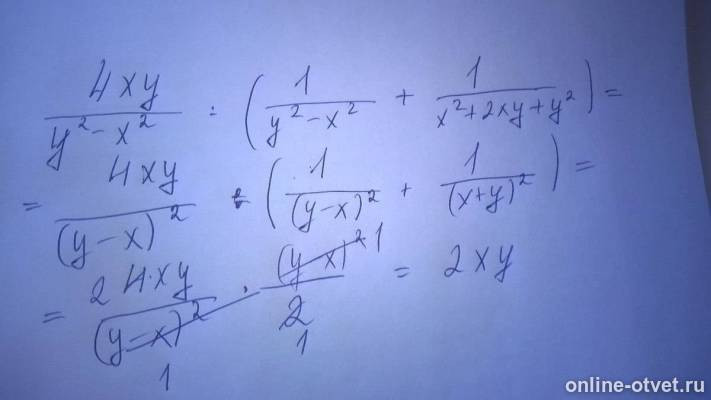 4xy / (y² - x²) : ( 1 / (y² - x²) + 1 / (x² + 2xy + y²) ) =
= 4xy / (y - x)² : ( 1 / (y - x)² + 1 / (x + y)² ) =
= 2 4xy / (y - x)² 1 · (y x)² 1 / 2 1 = 2xy
online-otvet.ru